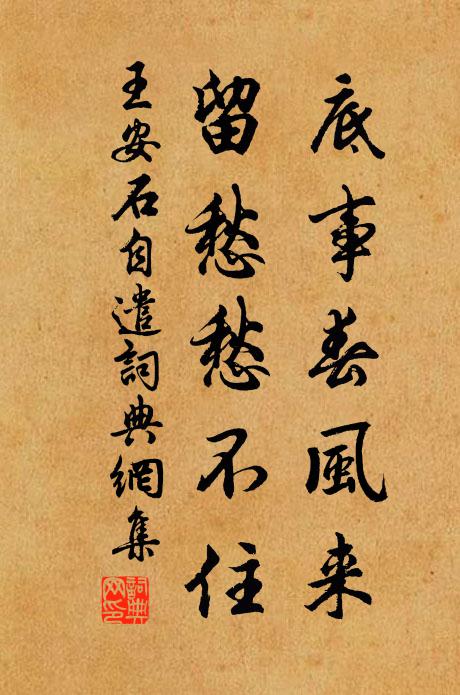 底事春風来
留愁愁不住
王安石自遣詞典網集
詞典網印